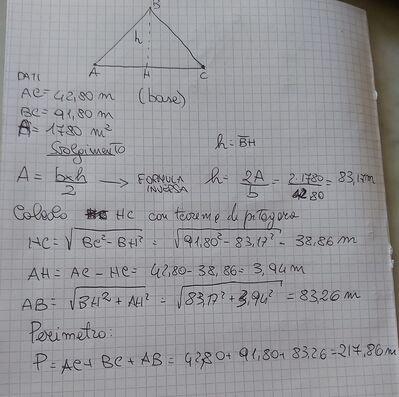 B
h
A H C
DATI
AC = 42,80 m (base)
BC = 91,80 m
A = 1780 m²
Svolgimento h = BH
A = bxh/2 → FORMULA INVERSA h = 2A/b = 2·1780/42,80 = 83,17m
Calcolo HC con teorema di pitagora
HC = √BC² - BH² = √91,80² - 83,17² = 38,86 m
AH = AC - HC = 42,80 - 38,86 = 3,94 m
AB = √BH² + AH² = √83,17² + 3,94² = 83,26 m
Perimetro:
P = AC + BC + AB = 42,80 + 91,80 + 83,26 = 217,86 m